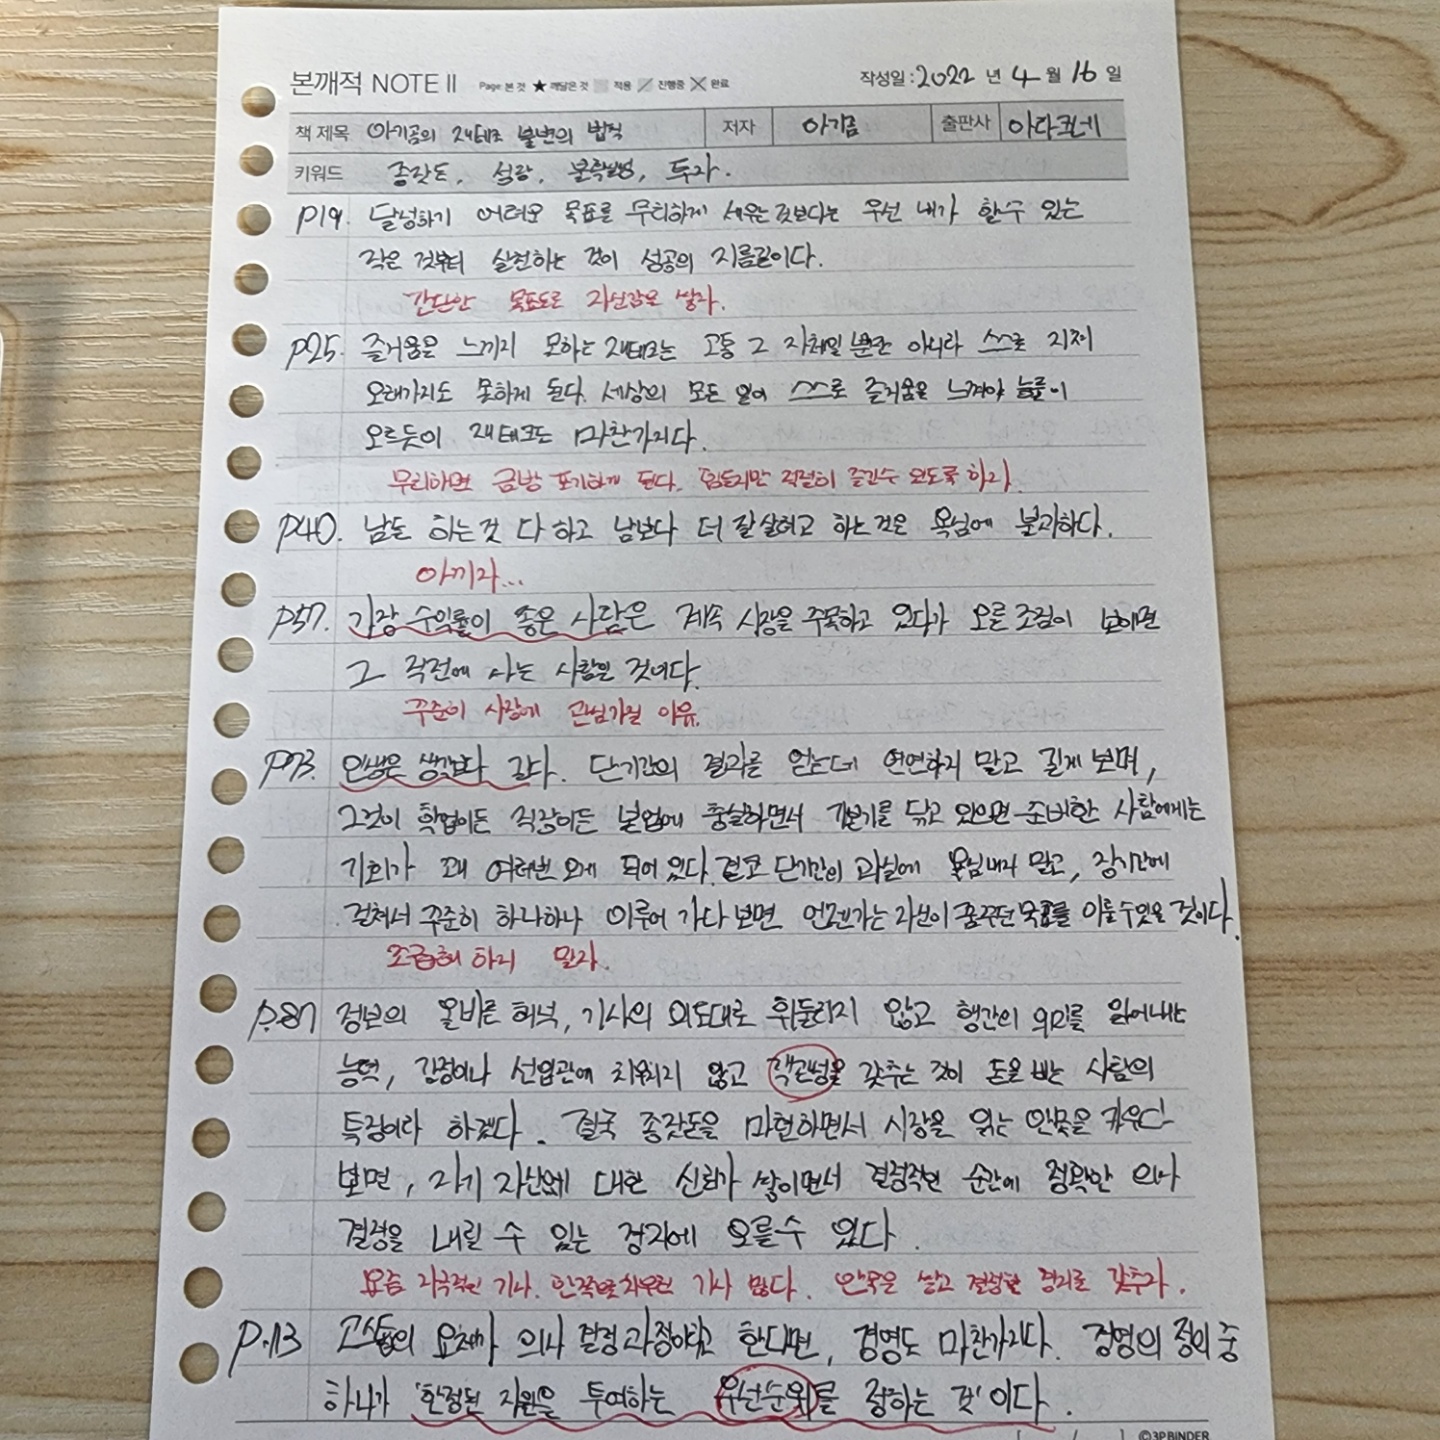 본깨적 NOTE II Page 본 것 ★ 깨달은 것 적용 진행중 완료 작성일 : 2022 년 4 월 16 일
책 제목 아기곰의 재테크 불변의 법칙 저자 아기곰 출판사 아라크네
키워드 종잣돈, 성공, 투자.
P19. 달성하기 어려운 목표를 무리하게 세우는 것보다는 우선 내가 할수 있는
작은 것부터 실천하는 것이 성공의 지름길이다.
간단한 목표로 자신감을 쌓자.
P25. 즐거움을 느끼지 못하는 재테크는 고통 그 자체일 뿐만 아니라 스스로 지쳐
오래가지도 못하게 된다. 세상의 모든 일이 스스로 즐거움을 느껴야 능률이
오르듯이 재테크도 마찬가지다.
무리하면 금방 포기하게 된다. 힘들지만 적절히 즐길수 있도록 하자.
P40. 남들 하는것 다 하고 남보다 더 잘살려고 하는것은 욕심에 불과하다.
아끼자...
P57. 가장 수익률이 좋은 사람은 계속 시장을 주목하고 있다가 오를 조짐이 보이면
그 직전에 사는 사람일 것이다.
꾸준히 시장에 관심가질 이유.
P73. 인생은 생각보다 길다. 단기간의 결과를 얻는데 연연하지 말고 길게 보며,
그것이 학업이든 직장이든 본업에 충실하면서 기본기를 닦고 있으면 준비한 사람에게는
기회가 꽤 여러번 오게 되어 있다. 결코 단기간의 과실에 욕심내지 말고, 장기간에
걸쳐서 꾸준히 하나하나 이루어 가다 보면 언젠가는 자신이 꿈꾸던 목표를 이룰수있을 것이다.
조급해 하지 말자.
P.87 정보의 올바른 해석, 기사의 의도대로 휘둘리지 않고 행간의 의미를 읽어내는
능력, 감정이나 선입관에 치우치지 않고 객관성을 갖추는 것이 돈을 버는 사람의
특징이라 하겠다. 결국 종잣돈을 마련하면서 시장을 읽는 안목을 키우다
보면, 자기 자신에 대한 신뢰가 쌓이면서 결정적인 순간에 정확한 의사
결정을 내릴 수 있는 경지에 오를수 있다.
요즘 자극적인 기사. 한쪽으로 치우친 기사 많다. 안목을 쌓고 결정할 경지를 갖추자.
P.113 고스톱의 요체가 의사 결정 과정이라고 한다면, 경영도 마찬가지다. 경영의 정의 중
하나가 '한정된 자원을 투여하는 우선순위를 정하는 것' 이다.
©3P BINDER